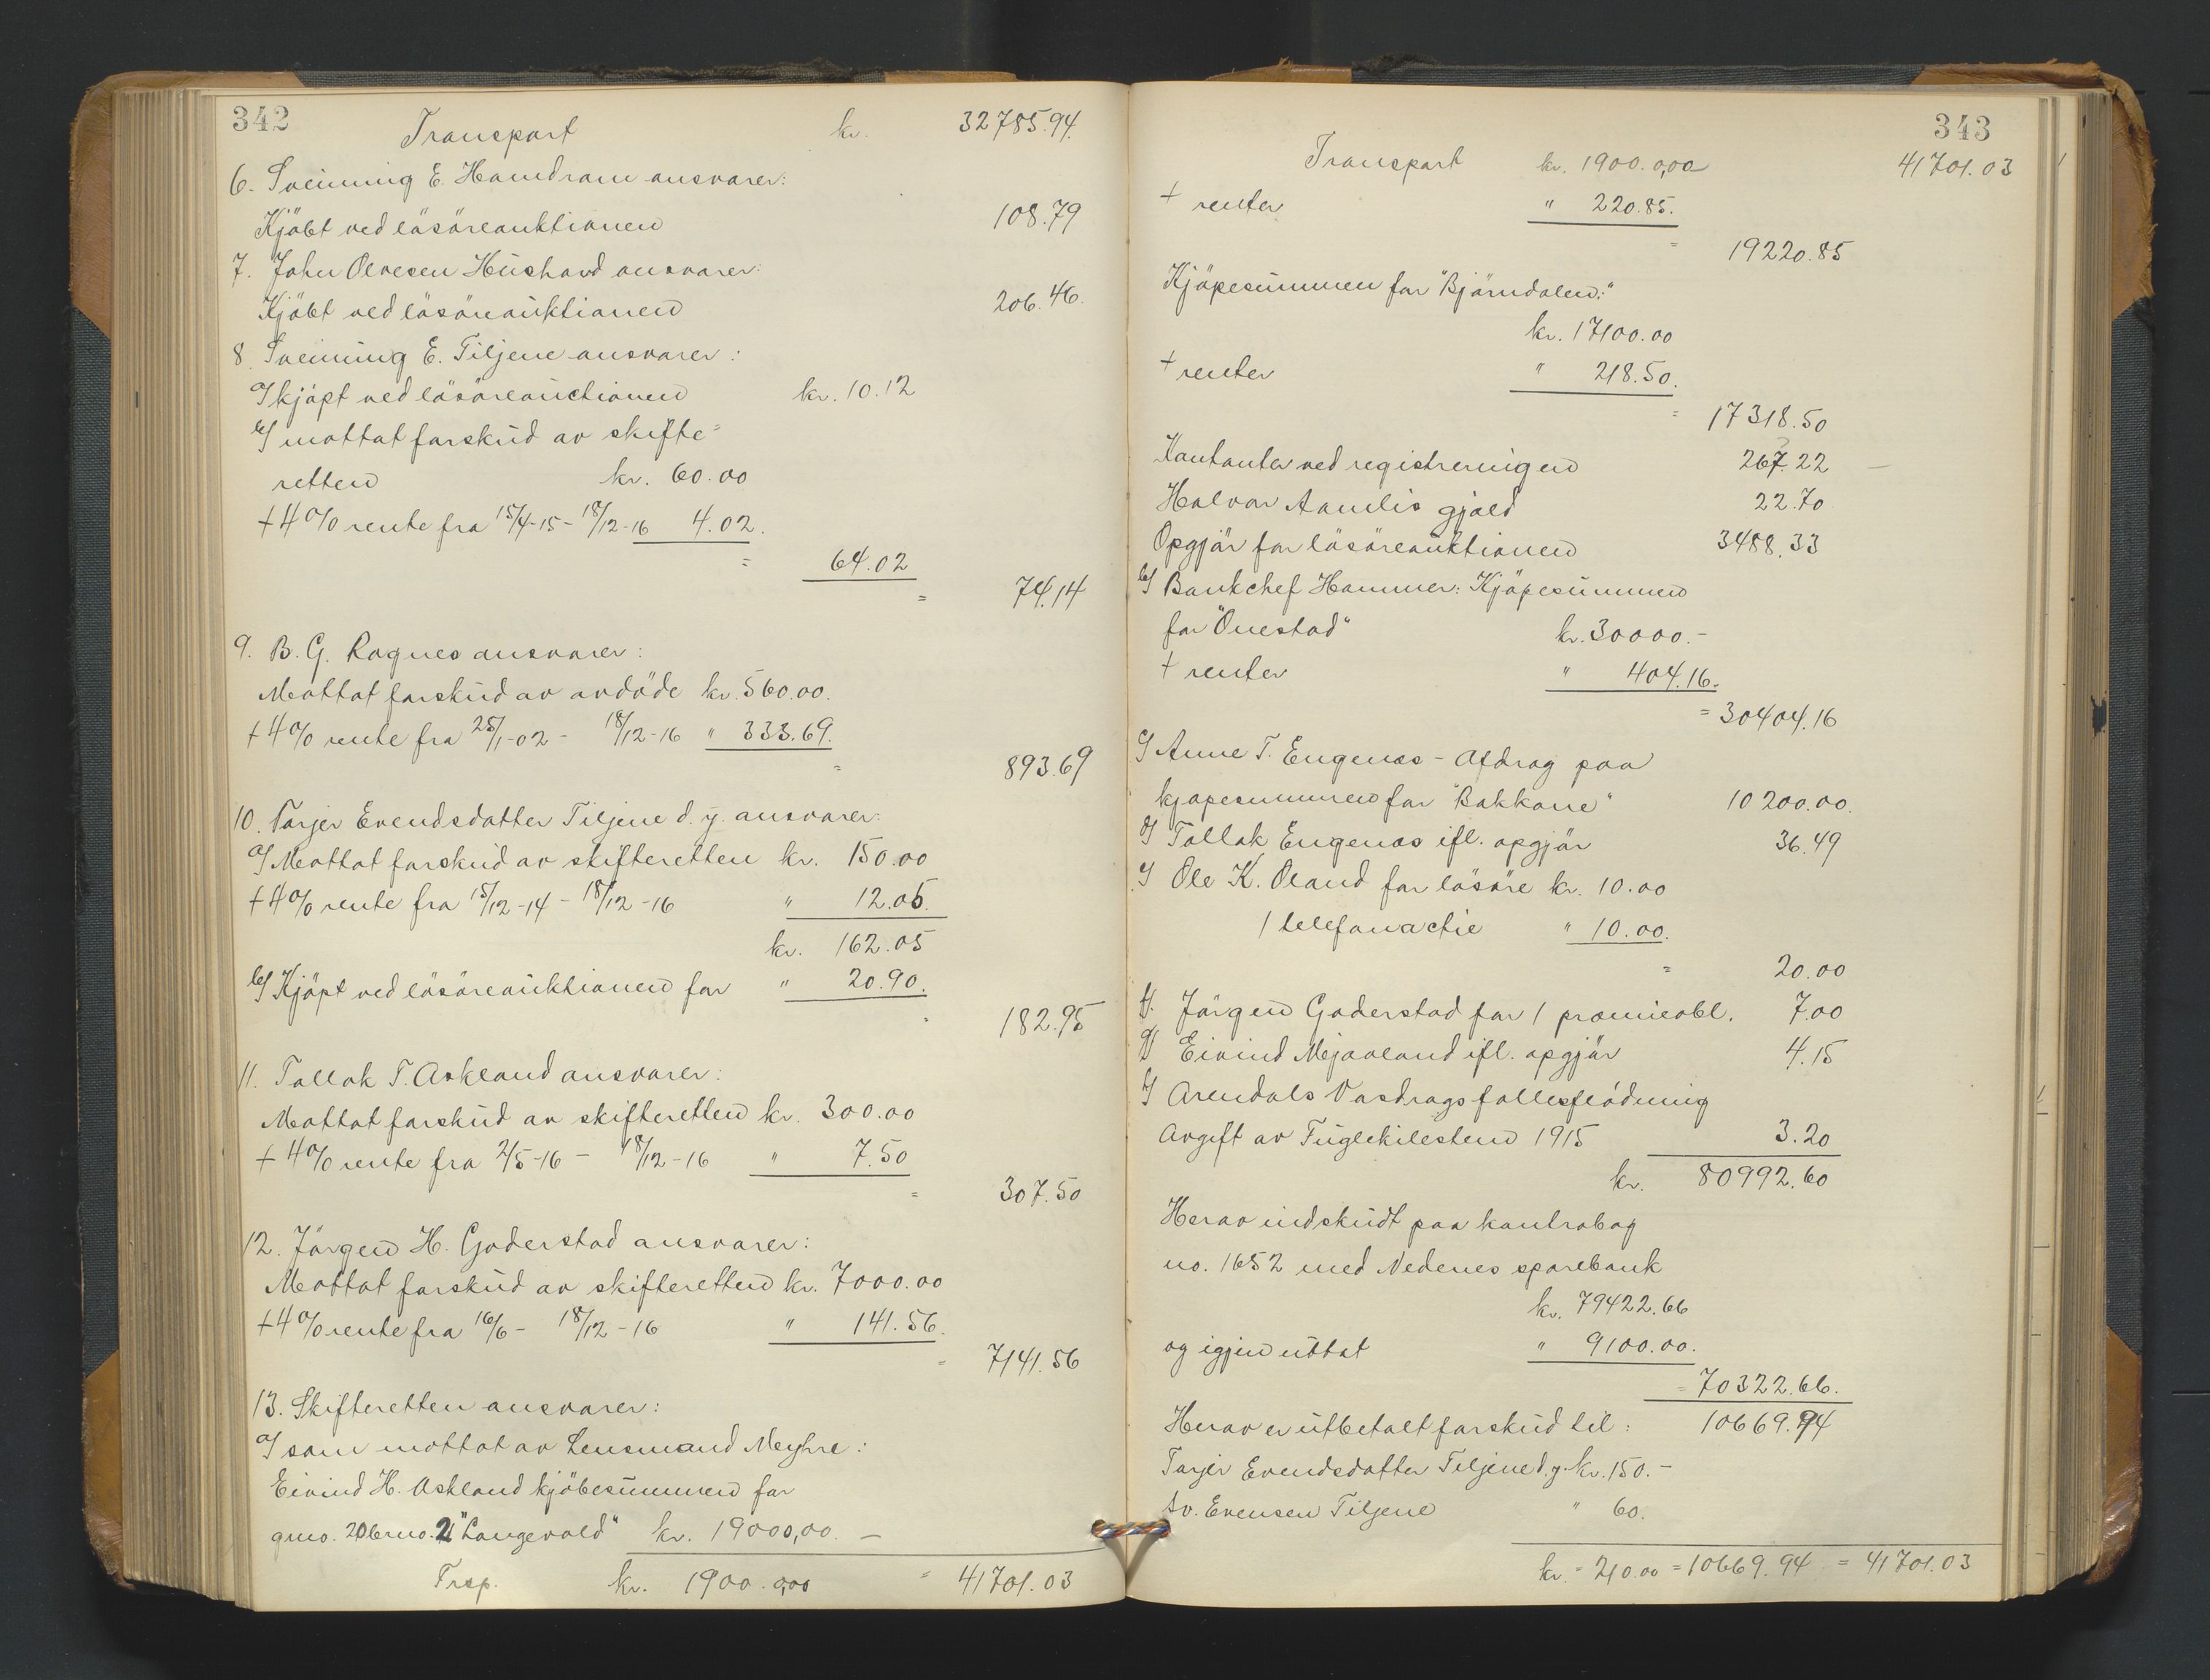 342
Transport kr. 32785.94.
6. Sveinung E. Hamdram ansvarer:
Kjöbt ved lösöreauktionen 108.79
7. John Olvesen Hüshovd ansvarer:
Kjöbt ved lösöreauktionen 206.46.
8 Sveinung E. Tiljene ansvarer:
a/ kjöpt ved lösöreauctionen kr. 10.12
b/ mottat forskud av skifte=
retten kr. 60.00
+ 4% rente fra 15/4-15 - 18/12-16 4.02.
= 64.02
= 74.14
9. B. G. Rognes ansvarer:
Mottat forskud av avdöde kr. 560.00.
+ 4% rente fra 25/1-02 - 18/12-16 " 333.69.
= 893.69
10. Torjer Evendsdatter Tiljene d. y. ansvarer:
a/ Mottat forskud av skifteretten kr. 150.00
+ 4% rente fra 15/12-14 - 18/12-16 " 12.05.
kr. 162.05
b/ Kjöpt ved lösöreauktionen for " 20.90.
= 182.95
11. Tollak T. Askland ansvarer:
Mottat forskud av skifteretten kr. 300.00
+ 4% rente fra 2/5-16 - 18/12-16 " 7.50
= 307.50
12. Jörgen H. Goderstad ansvarer:
Mottat forskud av skifteretten kr. 7000.00
+ 4% rente fra 16/6 - 18/12-16 " 141.56.
= 7141.56
13. Skifteretten ansvarer:
a/ som mottat av Lensmand Meyhre:
Eivind H. Askland kjöbesummen for
gno. 20 bno. 2 "Langevold" kr. 19000,00. —
Trsp. kr. 1900.0,00 = 41701.03
343
Transport kr. 1900.0,00 41701.03
+ renter " 220.85.
= 19220.85
Kjöpesummen for "Björndalen:"
kr. 17100.00
+ renter " 218.50.
= 17318.50
Kontanter ved registreringen 267.22 —
Halvor Aamlis gjæld 22.70
Opgjör for lösöreauktionen 3488.33
b/ Bankchef Hammer: Kjöpesummen
for "Övestad" kr. 30000.-
+ renter " 404.16.
= 30404.16
c/ Anne T. Engenæs - Afdrag paa
kjøpesummen for "Bakkane" 10200.00.
d/ Tollak Engenæs ifl. opgjör 36.49
e/ Ole K. Oland for lösöre kr. 10.00
1 telefonactie " 10.00.
= 20.00
f/. Jörgen Goderstad for 1 præmieobl. 7.00
g/ Eivind Mjaaland ifl. opgjör 4.15
h/ Arendals Vasdrags fællesflödning
Avgift av Fuglekilesten 1915 3.20
kr. 80992.60
Herav indskudt paa kontrabog
no. 1652 med Nedenes sparebank
kr. 79422.66
og igjen uttat " 9100.00.
= 70322.66.
Herav er utbetalt forskud til: 10669.94
Torjer Evendsdatter Tiljene d. y. kr. 150.-
Sv. Evensen Tiljene " 60.
kr. = 210.00 = 10669.94 = 41701.03